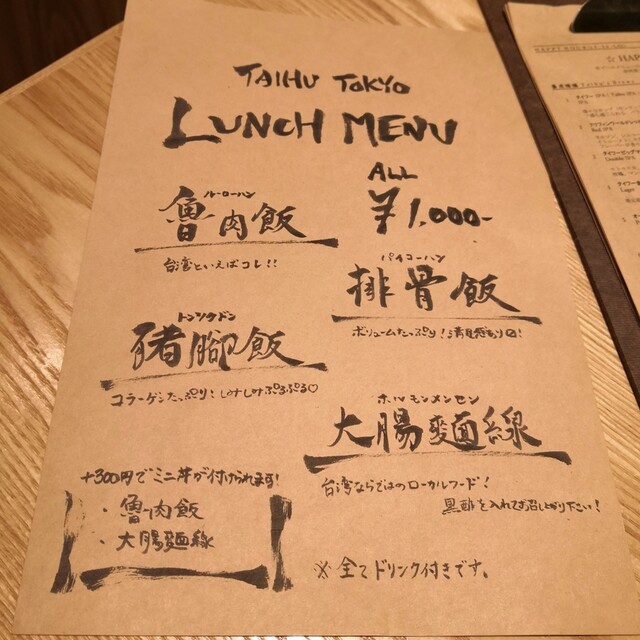 TAIHU TOKYO
LUNCH MENU
ALL
¥1,000-
ルーローハン
魯肉飯
台湾といえばコレ!!
パイコーハン
排骨飯
ボリュームたっぷり!満足感あり〼!
トンソクドン
豬腳飯
コラーゲンたっぷり!しみしみぷるぷる♡
ホルモンメンセン
大腸麵線
台湾ならではのローカルフード!
黒酢を入れてお召し上がり下さい!
+300円でミニ丼が付けられます!
・魯肉飯
・大腸麵線
※全てドリンク付きです。
☆ HAP